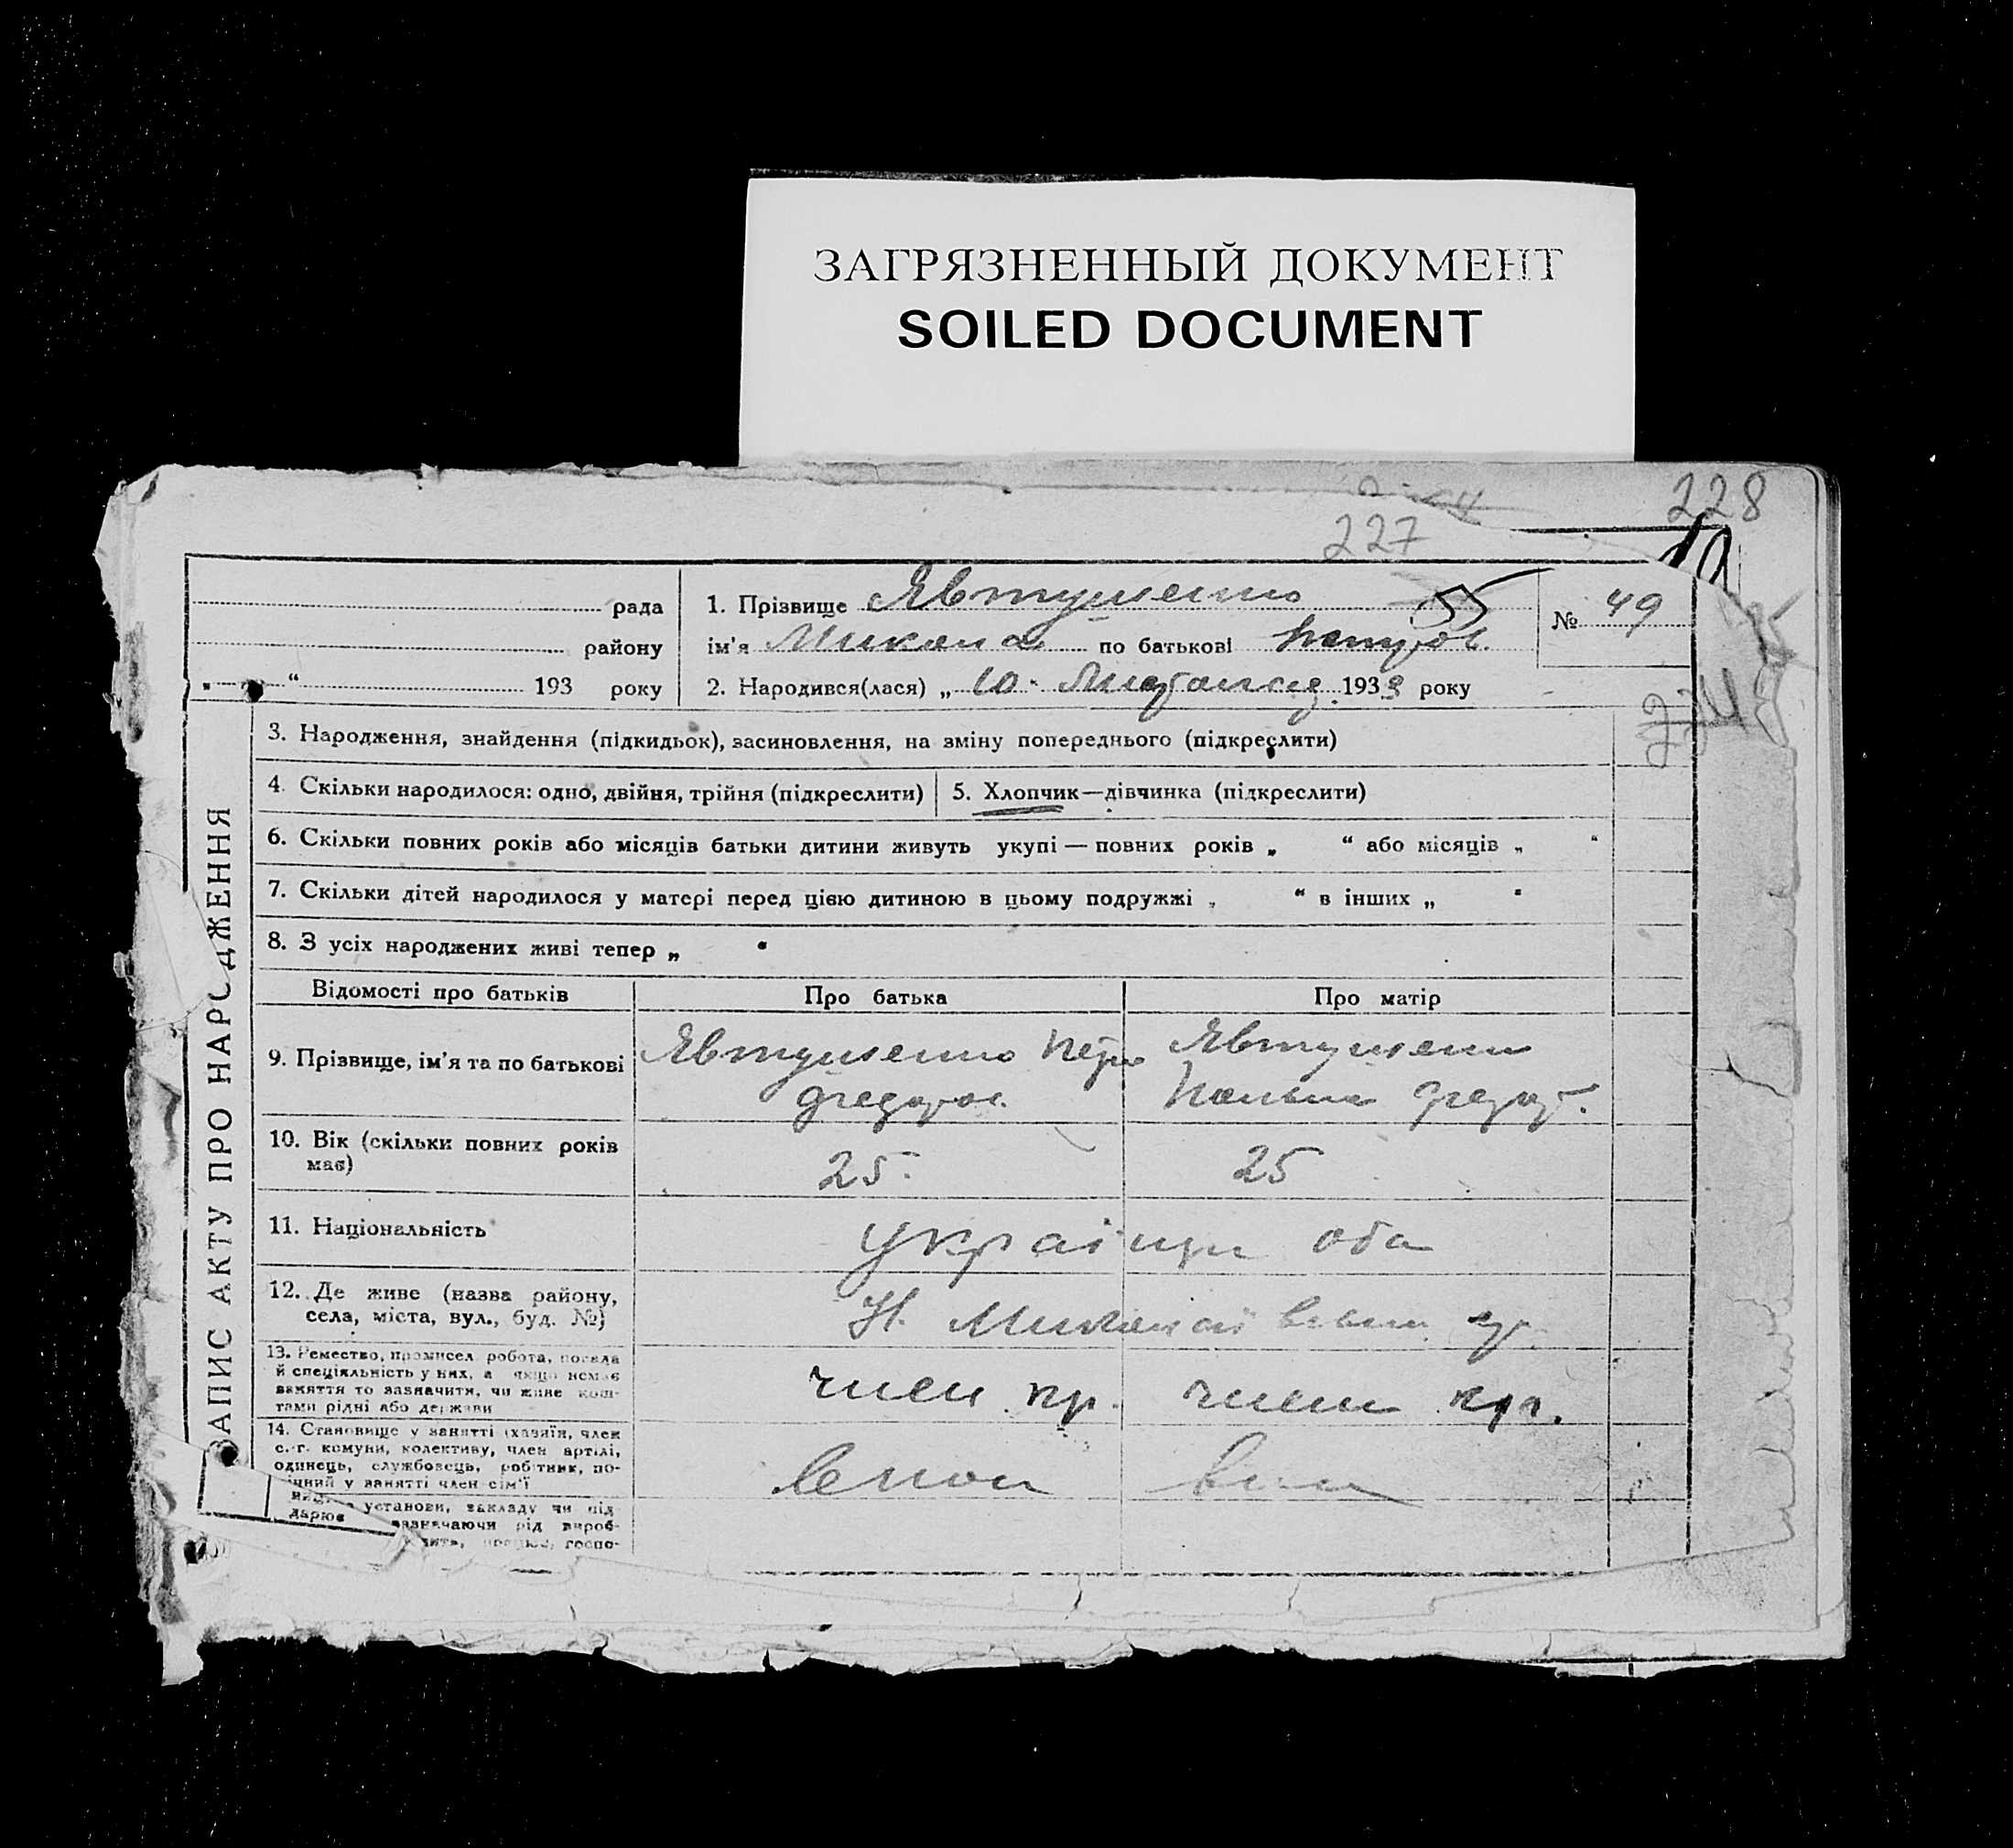 ЗАГРЯЗНЕННЫЙ ДОКУМЕНТ
SOILED DOCUMENT
228
227
рада
району
„ “ 193 року
1. Прізвище Явтушенко
ім'я Микола по батькові Петров.
2. Народився(лася) „ 10 193 року
№ 49
ЗАПИС АКТУ ПРО НАРОДЖЕННЯ
3. Народження, знайдення (підкидьок), засиновлення, на зміну попереднього (підкреслити)
4. Скільки народилося: одно, двійня, трійня (підкреслити)
5. Хлопчик—дівчинка (підкреслити)
6. Скільки повних років або місяців батьки дитини живуть укупі — повних років „ “ або місяців „ “
7. Скільки дітей народилося у матері перед цією дитиною в цьому подружжі „ “ в інших „ “
8. З усіх народжених живі тепер „ “
Відомості про батьків Про батька Про матір
9. Прізвище, ім'я та по батькові
Явтушенко Петро
Федоров.
Явтушенко
Федор.
10. Вік (скільки повних років
має)
25
25
11. Національність
Українци оба
12. Де живе (назва району,
села, міста, вул., буд. №)
Н. Миколаї
13. Ремество, промисел робота, посада
й спеціяльність у них, а якщо немає
заняття то зазначити, чи живе кош-
тами рідні або держави
член кр.
член кр.
14. Становище у занятті (хазяїн, член
с.-г. комуни, колективу, член артілі,
одинець, службовець, робітник, по-
мічний у занятті член сім'ї
установи, закладу чи під
зазначаючи рід вироб-
госпо-